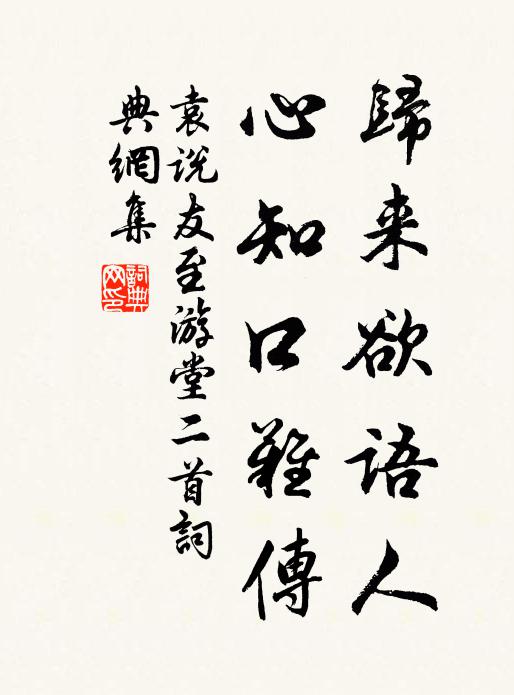 歸来欲語人
心知口難傳
袁说友至游堂二首詞
典網集
詞典
网印